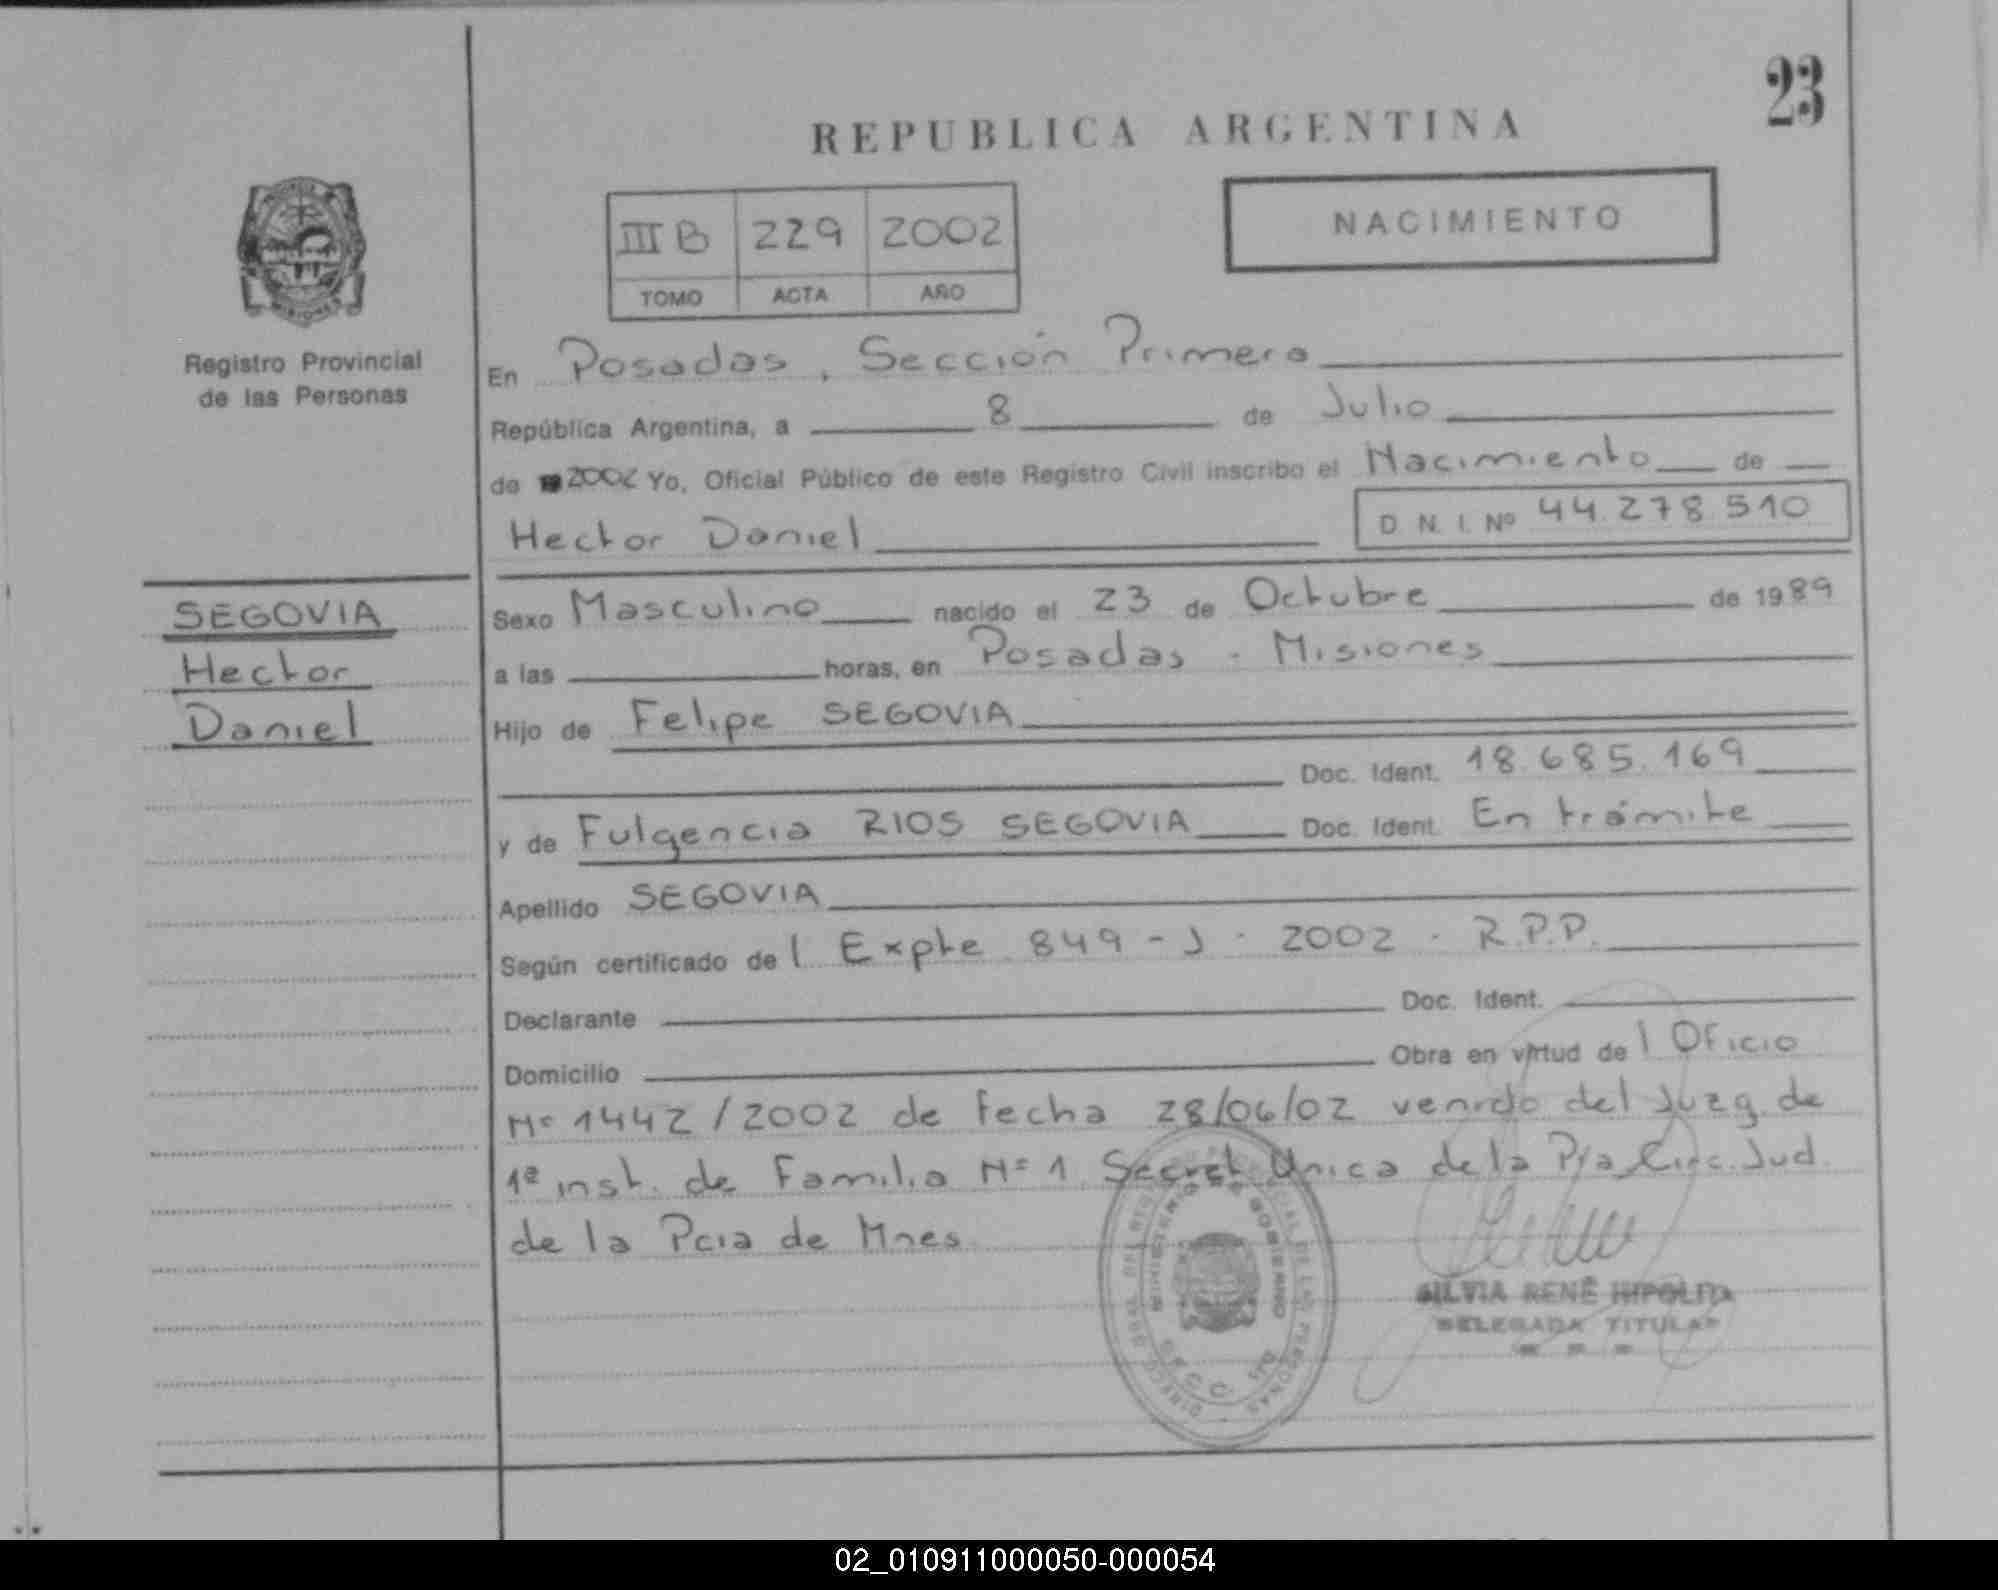 23
REPUBLICA ARGENTINA
III B 229 2002
TOMO ACTA AÑO
NACIMIENTO
Registro Provincial
de las Personas
En Posadas, Sección Primera
República Argentina, a 8 de Julio
de 2002 Yo, Oficial Público de este Registro Civil inscribo el Nacimiento de
Hector Daniel D. N. I. Nº 44.278.510
SEGOVIA
Hector
Daniel
Sexo Masculino nacido el 23 de Octubre de 1989
a las horas, en Posadas - Misiones
Hijo de Felipe SEGOVIA
Doc. Ident. 18.685.169
y de Fulgencia RIOS SEGOVIA Doc. Ident. En trámite
Apellido SEGOVIA
Según certificado del Expte 849 - J - 2002 - R.P.P.
Declarante Doc. Ident.
Domicilio Obra en virtud del Oficio
Nº 1442/2002 de fecha 28/06/02 venido del Juzg. de
1ª inst. de Familia Nº 1 Secret Unica de la Pra Circ. Jud.
de la Pcia de Mnes
MINISTERIO DE GOBIERNO
SILVIA RENÉ HIPOLITO
DELEGADA TITULAR
02_010911000050-000054